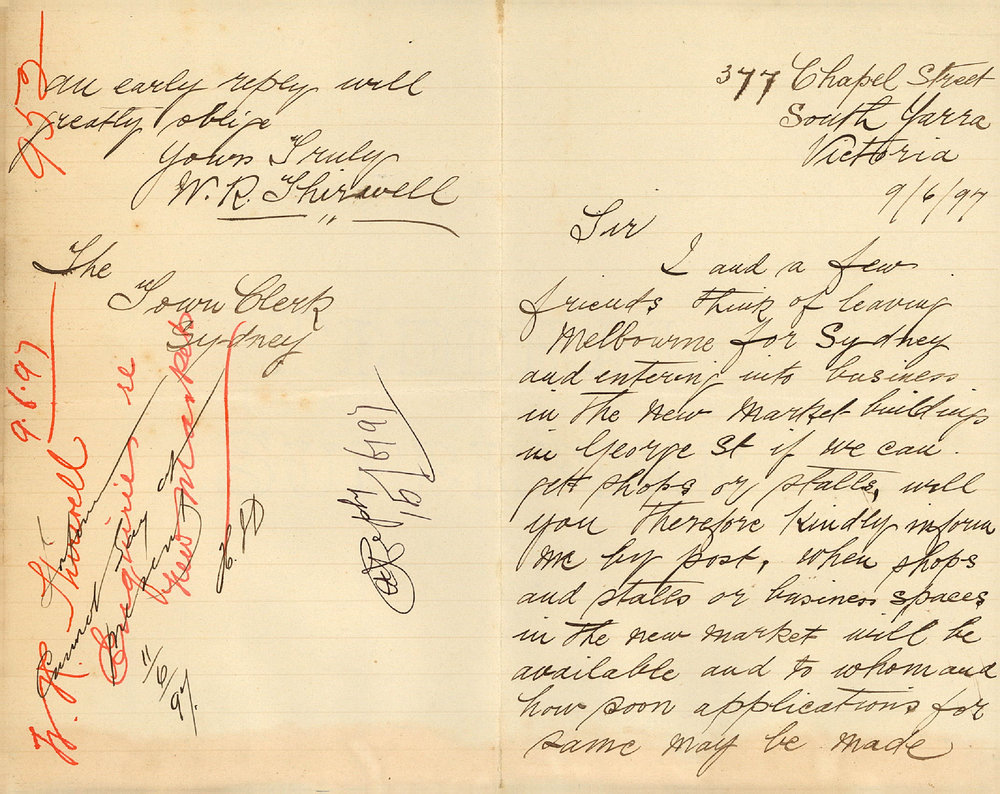 377 Chapel Street
South Yarra
Victoria
9/6/97
Sir
I and a few
friends think of leaving
Melbourne for Sydney
and entering into business
in the new market buildings
in George St if we can
gett shops or stalls, will
you therefore kindly inform
me by post, when shops
and stalls or business spaces
in the new market will be
available and to whom and
how soon applications for
same may be made
an early reply will
greatly oblige
Yours Truly
W. R. Thirwell
The
Town Clerk
Sydney
953
9.6.97
W. R. Thirwell
Enquiries re
New Markets
Inform
cannot say
the
11/6/97.
Reply
16/6/97